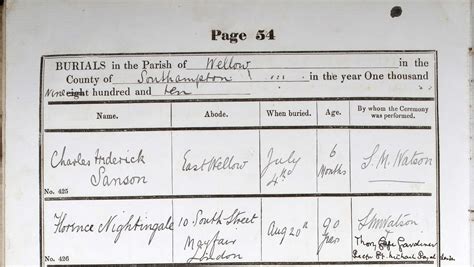 Page 54
BURIALS in the Parish of Wellow in the
County of Southampton ... in the year One thousand
Nine eight hundred and ten
Name. Abode. When buried. Age. By whom the Ceremony was performed.
Charles Frederick East Wellow July 6
Sanson 4th Months S. M. Watson
No. 425
Florence Nightingale 10 South Street Aug 20th 90 S M Watson
Mayfair Years Thory Gage Gardiner
London
No. 426